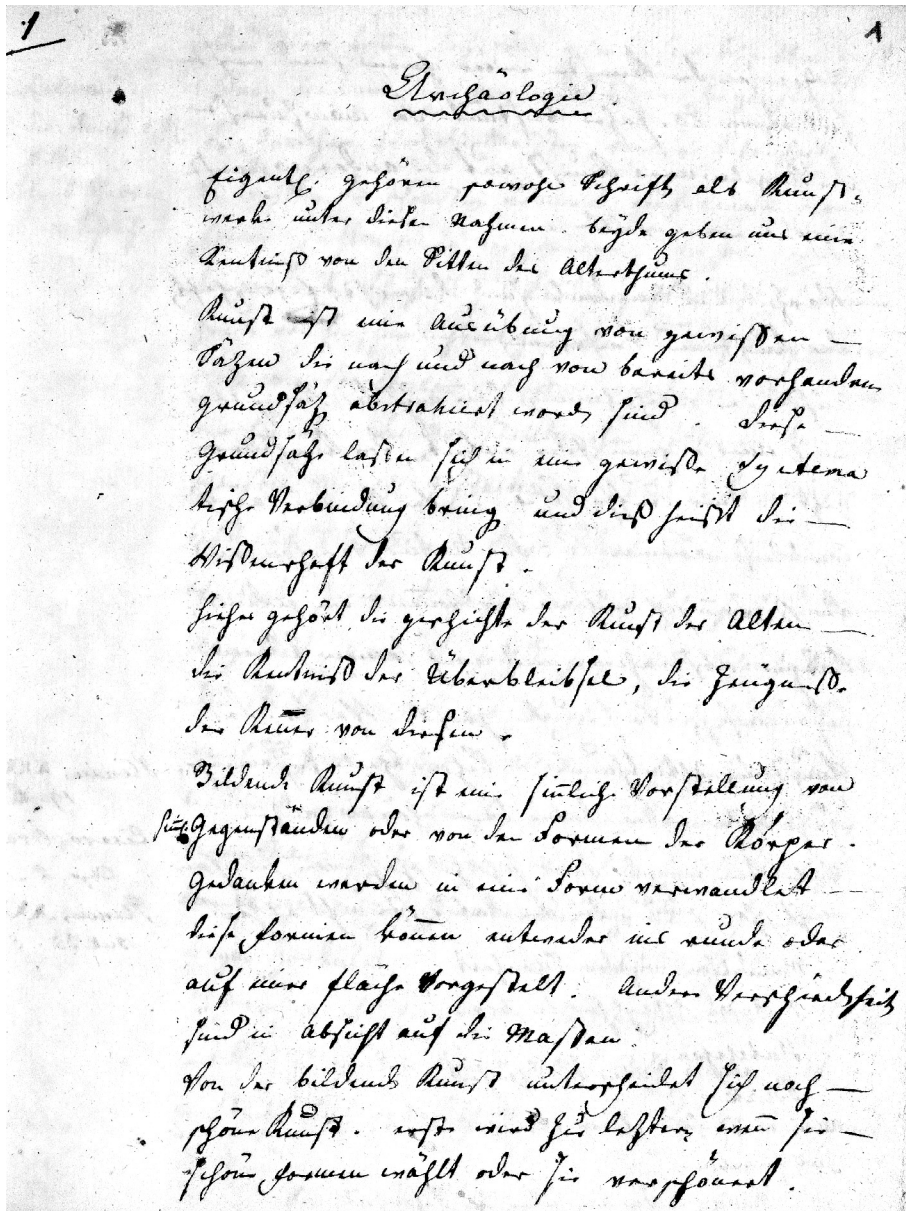 1 1
Archäologie
Eigentl. gehören sowohl Schrift als Kunst-
werke unter diesen Nahmen. beyde geben uns eine
Kentniß von den Sitten des Alterthums.
Kunst ist eine Ausübung von gewißen
Säzen die nach und nach von bereits vorhanden
grundsätz abstrahiert word sind. Diese
Grundsätze laßen sich in eine gewiße Systema
tische Verbindung bring und dieß heißt die
Wißenschaft der Kunst.
hieher gehört die geschichte der Kunst der Alten
die Kentniß der Überbleibsel, die Zeügniße
der Kenner von diesen.
Bildende Kunst ist eine sinnliche Vorstellung von
Gegenständen oder von den Formen der Körper.
Gedanken werden in eine Form verwandlet
diese formen können entweder ins runde oder
auf einer fläche Vorgestelt. Andere Verschiedenheit
sind in absicht auf die Maßen.
Von der bildend Kunst unterscheidet sich noch
schöne Kunst. erste wird zur letztern wenn sie
schöne formen wählt oder sie verschönert.